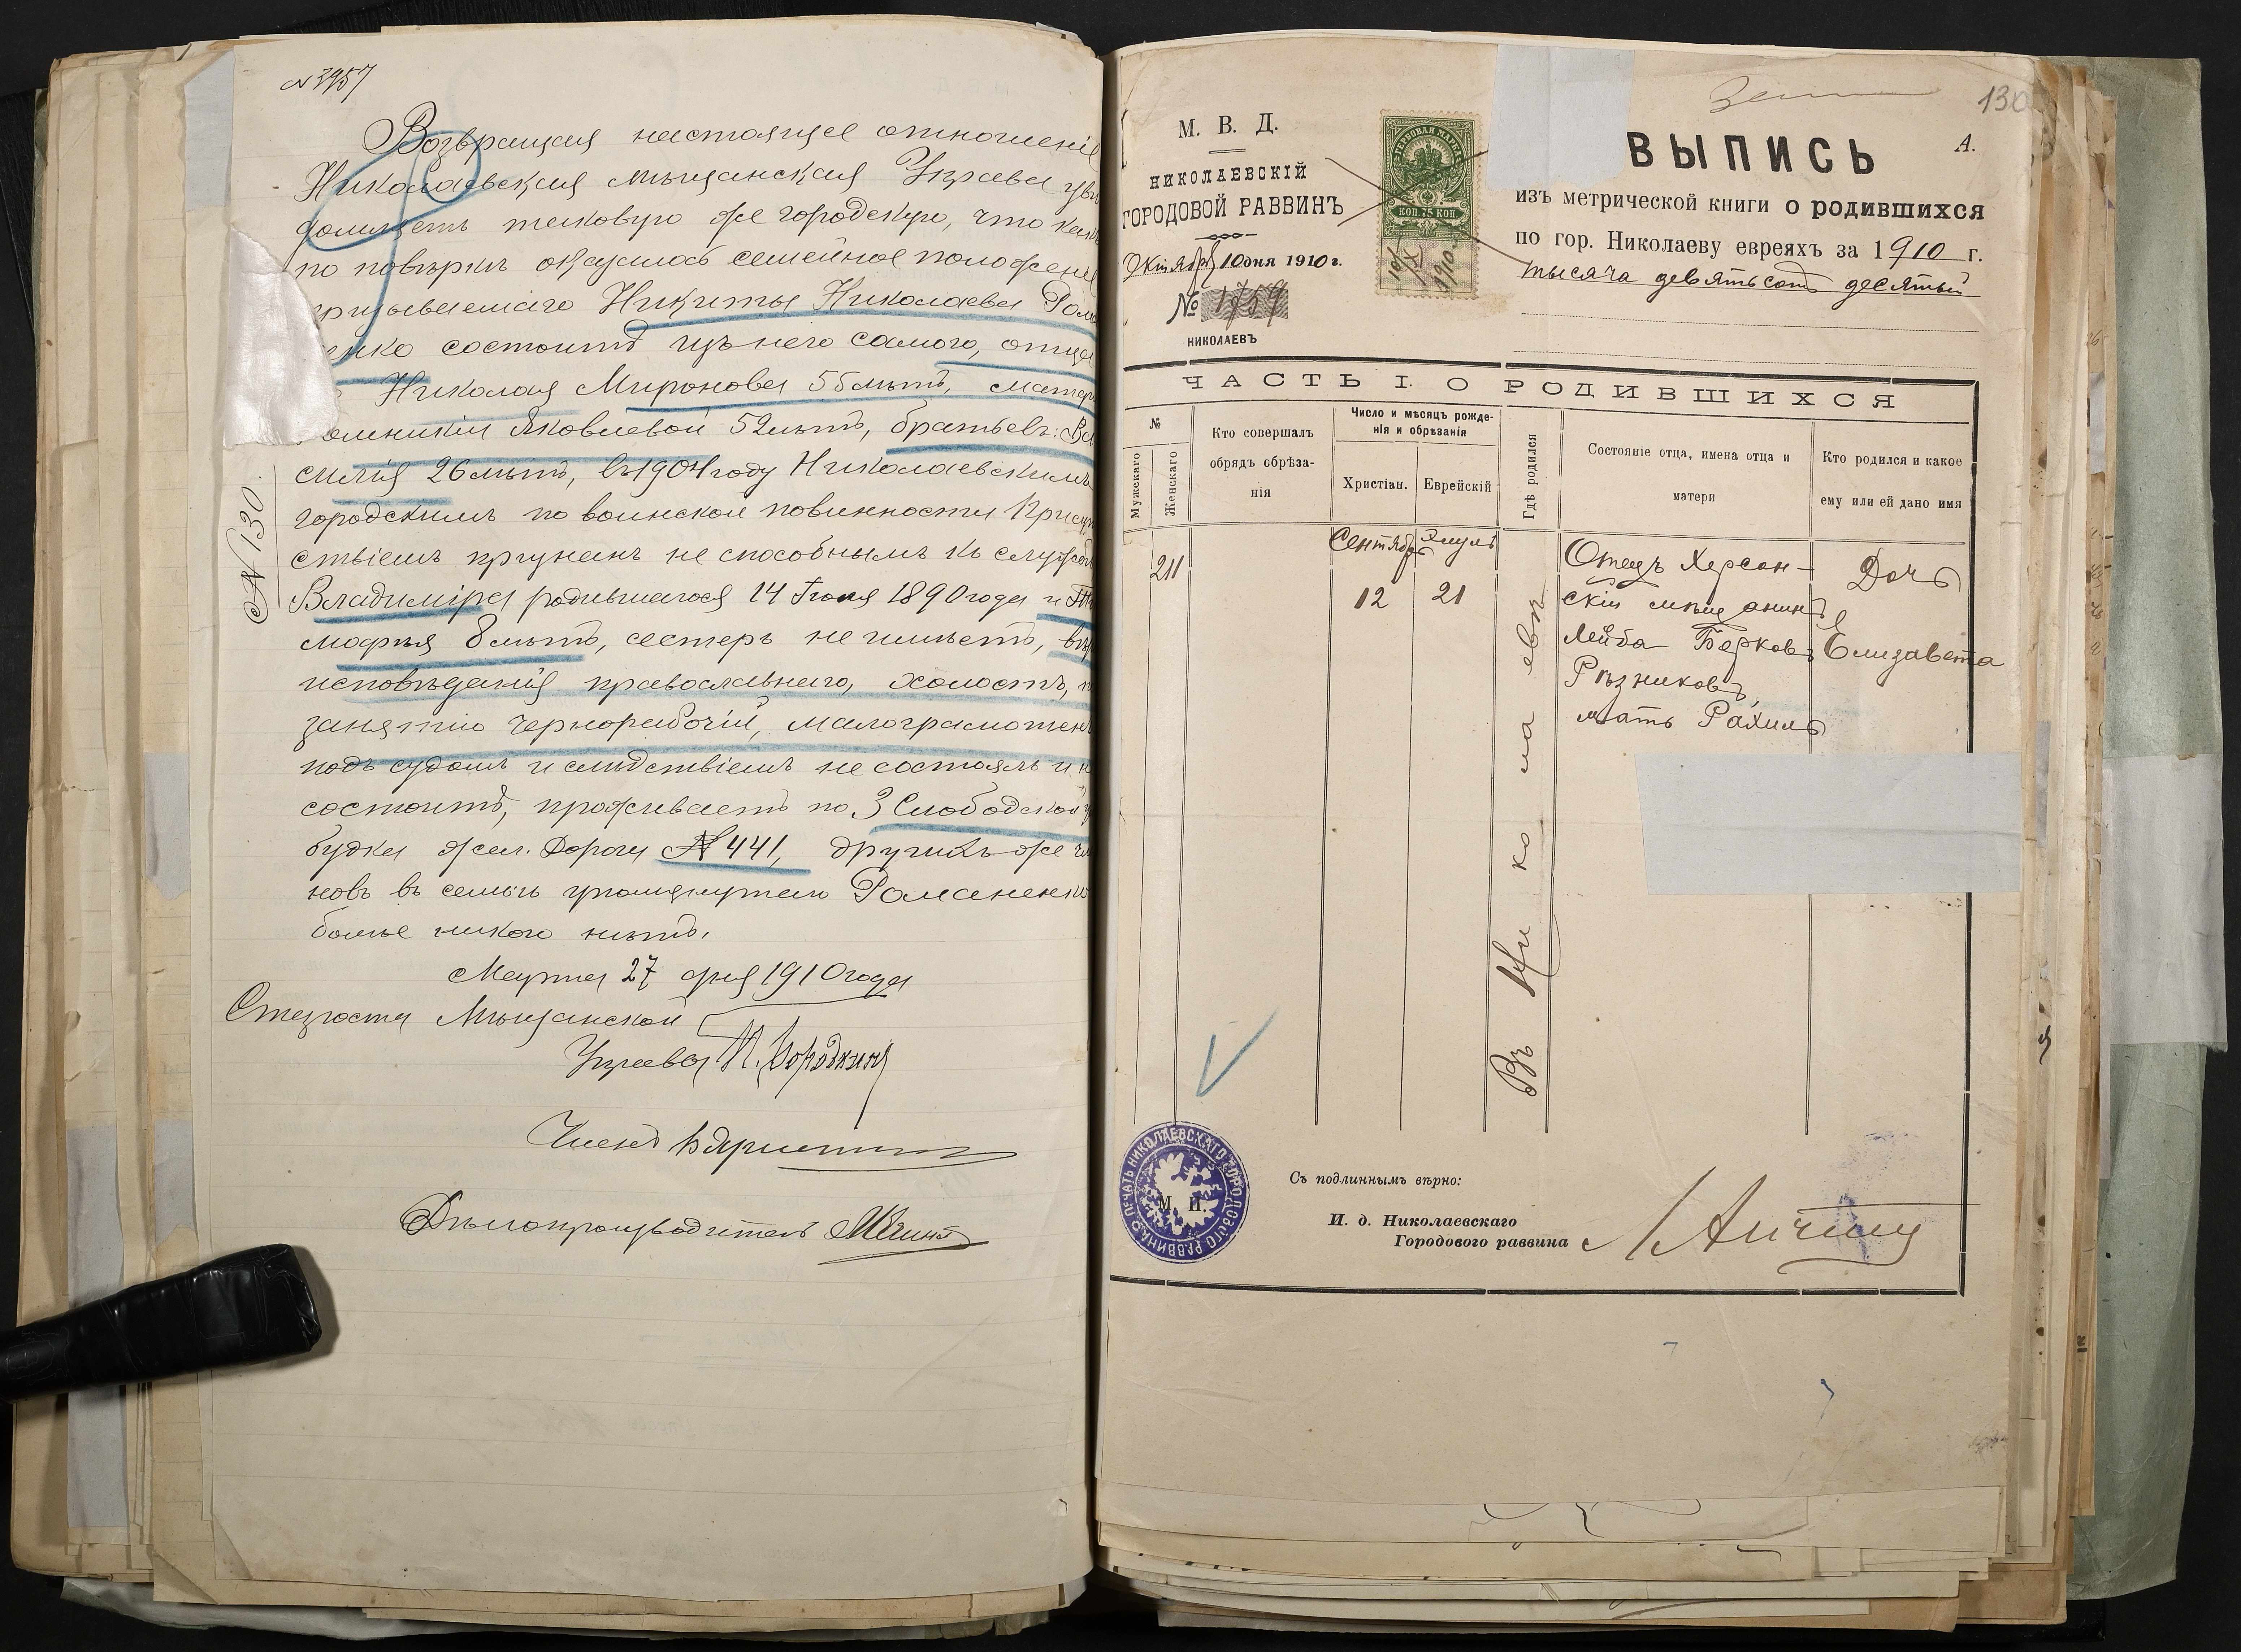 № 3957
Возвращая настоящее отношеніе
Николаевская мѣщанская Управа увѣ
домляетъ таковую же городскую, что какъ
по повѣркѣ оказалось семейное положеніе
призываемаго Никиты Николаева Рома
енко состоитъ изъ него самого, отца
Николая Миронова 55 лѣтъ, матери
Яковлевой 52 лѣтъ, братьевъ: Ва
силія 26 лѣтъ, въ 1904 году Николаевскимъ
городскимъ по воинской повинности Присут
ствіемъ признанъ не способнымъ къ службѣ
Владиміра родившагося 14 Іюля 1890 года и Ти
мофѣя 8 лѣтъ, сестеръ не имѣетъ, вѣро
исповѣданія православнаго, холостъ, п
занятію чернорабочій, малограмотенъ
подъ судомъ и слѣдствіемъ не состоялъ и н
состоитъ, проживаетъ по 3 Слободской у
будка жел. Дороги № 441, другихъ же чл
новъ въ семьѣ упомянутаго Романенко
болѣе никого нѣтъ.
Марта 27 дня 1910 года
Староста Мѣщанской
Управы
Членъ
Дѣлопроизводитель
№ 130.
130
М. В. Д.
НИКОЛАЕВСКІЙ
ГОРОДОВОЙ РАВВИНЪ
Октября 10 дня 1910 г.
№ 1759
НИКОЛАЕВЪ
ГЕРБОВАЯ МАРКА
КОП. 75 КОП
10/X 1910
А.
ВЫПИСЬ
изъ метрической книги о родившихся
по гор. Николаеву евреяхъ за 1910 г.
тысяча девятьсотъ десятый
ЧАСТЬ I. О РОДИВШИХСЯ
№
Мужскаго
Женскаго
Кто совершалъ
обрядъ обрѣза-
нія
Число и мѣсяцъ рожде-
нія и обрѣзанія
Христіан.
Еврейскій
Гдѣ родился
Состояніе отца, имена отца и
матери
Кто родился и какое
ему или ей дано имя
211
Сентябрь
12
Элулъ
21
Въ Николаевѣ
Отецъ Херсон-
скій мѣщанинъ
Лейба Берковъ
Рѣзниковъ,
мать Рахиль
Дочь
Елизавета
ПЕЧАТЬ НИКОЛАЕВСКАГО ГОРОДОВОГО РАВВИНА
М. П.
Съ подлиннымъ вѣрно:
И. д. Николаевскаго
Городового раввина